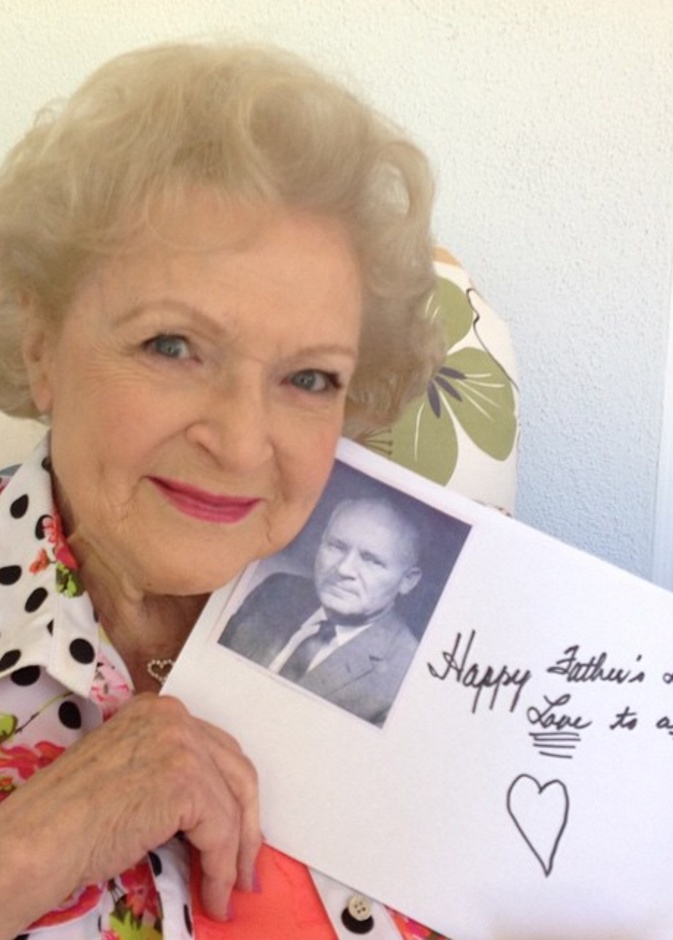 Happy Father's
Love to